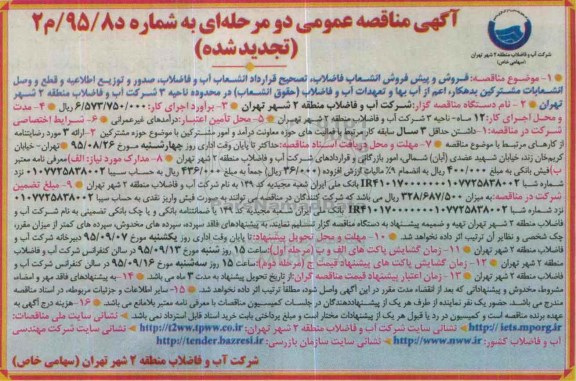 آگهی مناقصه عمومی دو مرحله‌ای به شماره د۹۵/۸/م۲
(تجدید شده)
شرکت آب و فاضلاب منطقه ۲ شهر تهران
(سهامی خاص)
۱- موضوع مناقصه: فروش و پیش فروش انشعاب فاضلاب، تصحیح قرارداد انشعاب آب و فاضلاب، صدور و توزیع اطلاعیه و قطع و وصل
انشعابات مشترکین بدهکار، اعم از آب بها و تعهدات آب و فاضلاب (حقوق انشعاب) در محدوده ناحیه ۳ شرکت آب و فاضلاب منطقه ۲ شهر
تهران ۲- نام دستگاه مناقصه گزار: شرکت آب و فاضلاب منطقه ۲ شهر تهران ۳- برآورد اجرای کار: ۶/۵۷۳/۷۵۰/۰۰۰ ریال ۴- مدت
و محل اجرای کار: ۱۲ ماه- ناحیه ۳ شرکت آب و فاضلاب منطقه ۲ شهر تهران ۵- محل تأمین اعتبار: درآمدهای غیرعمرانی ۶- شرایط اختصاصی
شرکت در مناقصه: ۱- داشتن حداقل ۳ سال سابقه کار مرتبط با فعالیت های حوزه معاونت درآمد و امور مشترکین با حوزه مشترکین ۲- ارائه ۳ مورد رضایتنامه
از کارهای مرتبط با موضوع مناقصه ۷- مهلت و محل دریافت اسناد مناقصه: حداکثر تا پایان وقت اداری روز چهارشنبه مورخ ۹۵/۰۸/۲۶ تهران- خیابان
کریم‌خان زند، خیابان شهید عضدی (آبان) شمالی، امور بازرگانی و قراردادهای شرکت آب و فاضلاب منطقه ۲ شهر تهران ۸- مدارک مورد نیاز: الف) معرفی نامه معتبر
ب) فیش بانکی به مبلغ ۴۰۰/۰۰۰ ریال به انضمام ۹٪ مالیات ارزش افزوده (۳۶/۰۰۰ ریال) جمعاً به مبلغ ۴۳۶/۰۰۰ ریال به حساب سیبا ۰۱۰۷۷۲۵۸۳۸۰۰۲
شماره شبا IR۴۱۰۱۷۰۰۰۰۰۰۰۱۰۷۷۲۵۸۳۸۰۰۲ بانک ملی ایران شعبه مجیدیه کد ۱۳۹ به نام شرکت آب و فاضلاب منطقه ۲ شهر تهران ۹- مبلغ تضمین
شرکت در مناقصه: به میزان ۳۲۸/۶۸۷/۵۰۰ ریال می باشد که شرکت کنندگان در مناقصه می توانند به صورت فیش واریز نقدی به حساب سیبا ۰۱۰۷۷۲۵۸۳۸۰۰۲
نزد شماره شبا IR۴۱۰۱۷۰۰۰۰۰۰۰۱۰۷۷۲۵۸۳۸۰۰۲ بانک ملی ایران شعبه مجیدیه کد ۱۳۹ یا ضمانتنامه بانکی و یا چک بانکی تضمینی به نام شرکت آب و
فاضلاب منطقه ۲ شهر تهران تهیه و ضمیمه پیشنهاد به دستگاه مناقصه گزار تسلیم نمایند. به پیشنهادهای فاقد سپرده، سپرده های مخدوش، سپرده های کمتر از میزان مقرر،
چک شخصی و نظایر آن ترتیب اثر داده نخواهد شد. ۱۰- مهلت و محل تحویل پیشنهاد: تا پایان وقت اداری روز یکشنبه مورخ ۹۵/۰۹/۰۷ دبیرخانه شرکت آب و
فاضلاب منطقه ۲ شهر تهران ۱۱- زمان گشایش پاکت های الف و ب (مرحله اول): ساعت ۱۵ روز شنبه مورخ ۹۵/۰۹/۱۳ در سالن کنفرانس شرکت آب و فاضلاب
منطقه ۲ شهر تهران ۱۲- زمان گشایش پاکت های پیشنهاد قیمت ج (مرحله دوم): ساعت ۱۵ روز سه‌شنبه مورخ ۹۵/۰۹/۱۶ در سالن کنفرانس شرکت آب و
فاضلاب منطقه ۲ شهر تهران ۱۳- زمان اعتبار پیشنهاد قیمت مناقصه گران: از تاریخ تحویل پیشنهاد به مدت ۳ ماه می باشد. ۱۴- به پیشنهادهای فاقد مهر و امضاء،
مشروط، مخدوش و پیشنهاداتی که بعد از انقضاء مدت مقرر در این آگهی واصل شود، مطلقاً ترتیب اثر داده نخواهد شد. ۱۵- سایر اطلاعات و جزئیات مربوطه، در اسناد مناقصه
مندرج می باشد. حضور یک نفر نماینده از طرف هر یک از پیشنهاددهندگان در جلسات کمیسیون مناقصات با معرفی نامه معتبر بلامانع می باشد. ۱۶- هزینه درج آگهی به
عهده برنده مناقصه است و کمیسیون در رد یا قبول هر یک از پیشنهادات مختار است و مبلغ پرداختی بابت خرید اسناد قابل استرداد نمی باشد. نشانی سایت ملی مناقصات:
http://iets.mporg.ir نشانی سایت شرکت آب و فاضلاب منطقه ۲ شهر تهران: http://t2ww.tpww.co.ir نشانی سایت شرکت مهندسی
آب و فاضلاب کشور: http://www.nww.ir نشانی سایت سازمان بازرسی: http://tender.bazresi.ir
شرکت آب و فاضلاب منطقه ۲ شهر تهران (سهامی خاص)